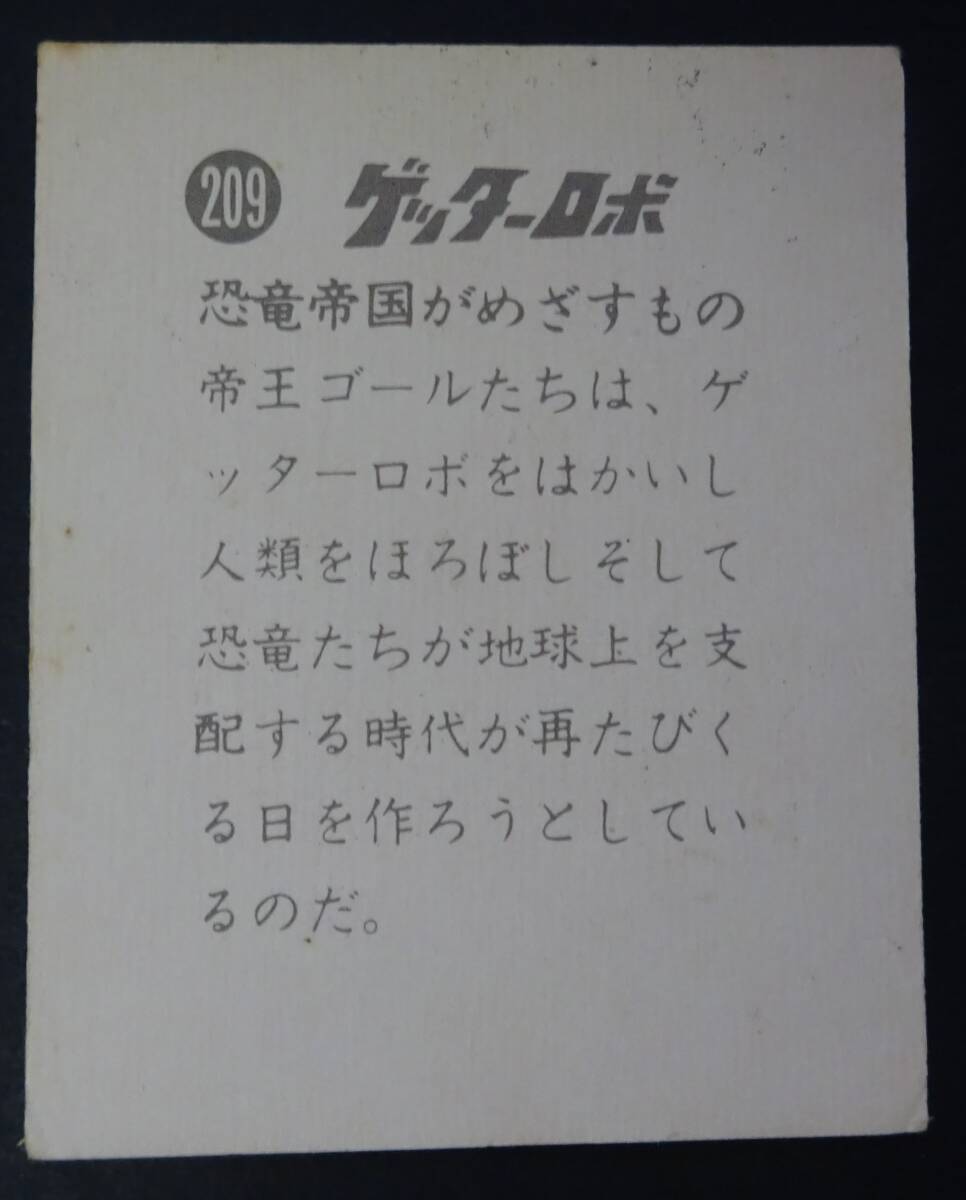 209 ゲッターロボ
恐竜帝国がめざすもの
帝王ゴールたちは、ゲ
ッターロボをはかいし
人類をほろぼしそして
恐竜たちが地球上を支
配する時代が再たびく
る日を作ろうとしてい
るのだ。